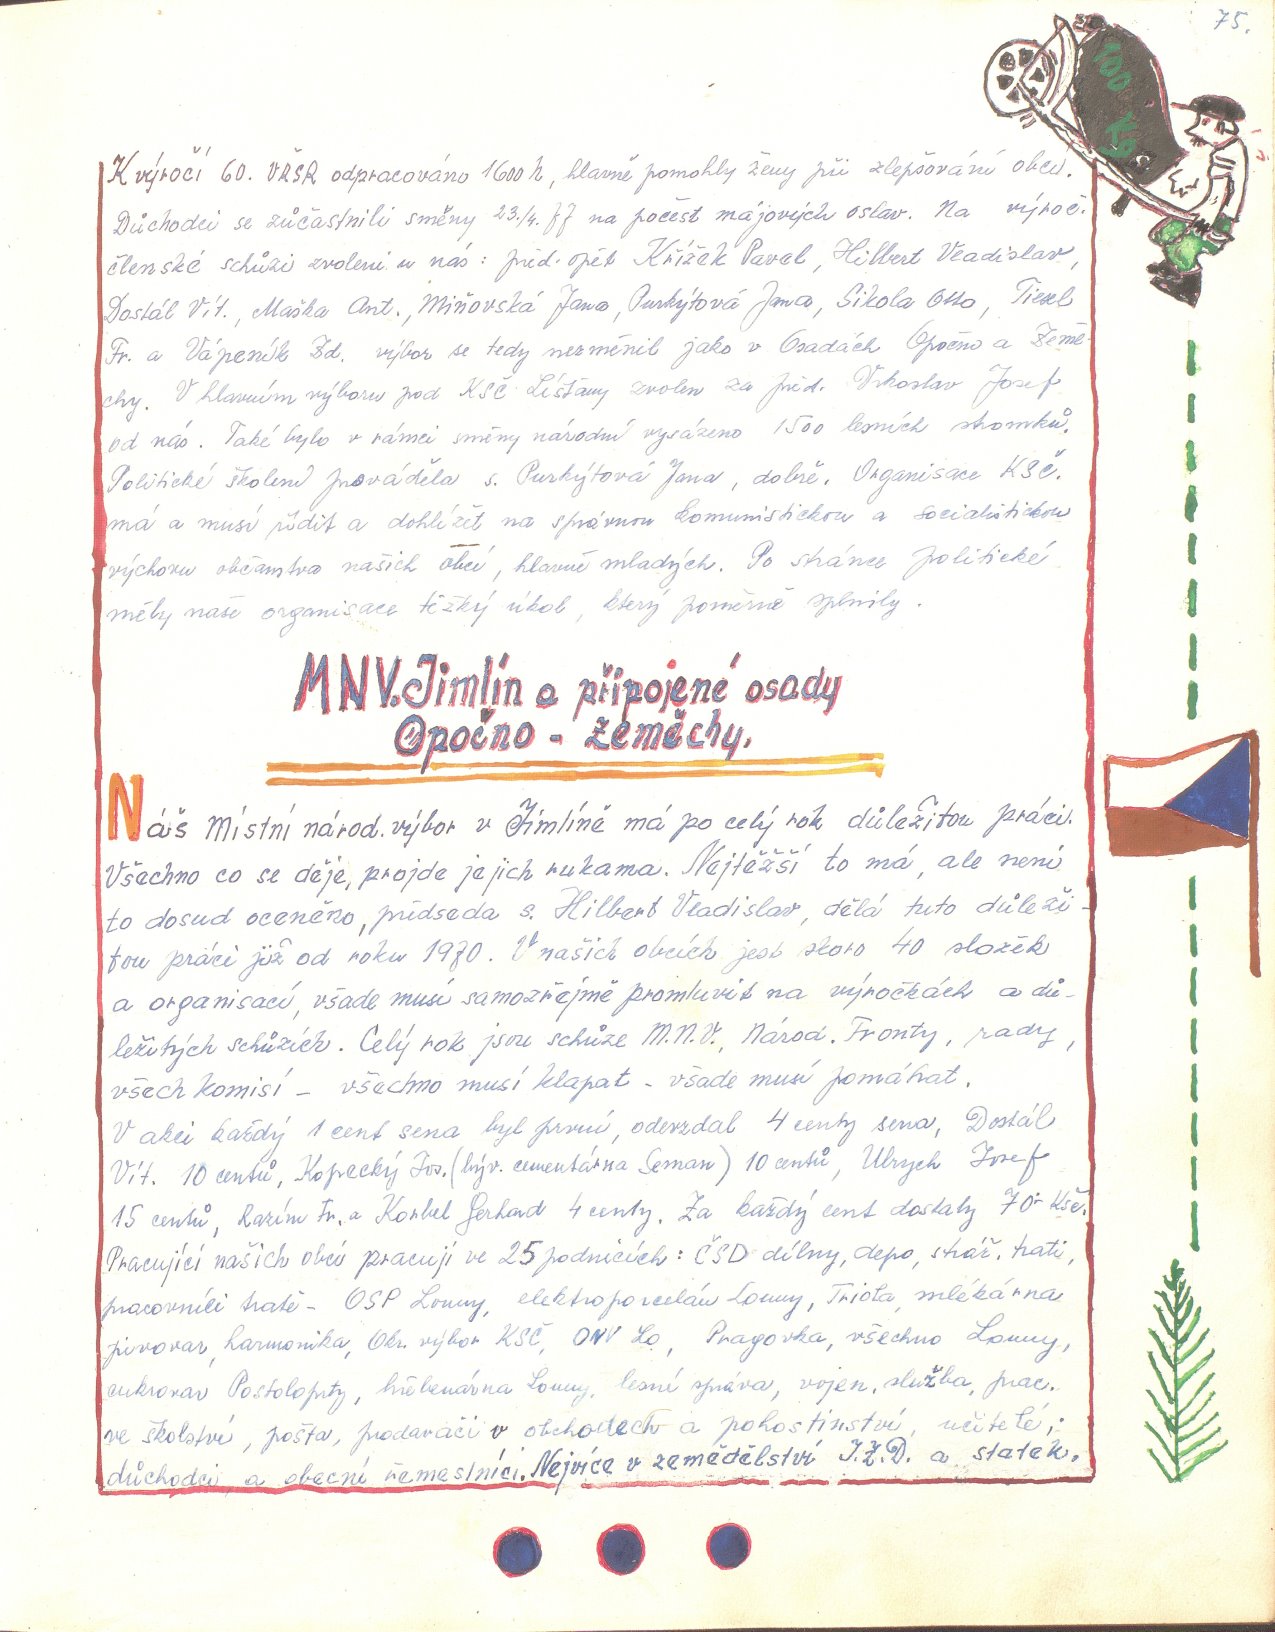 75.
100 Kg
K výročí 60. VŘSR odpracováno 1600 h, hlavně pomohly ženy při zlepšování obcí.
Důchodci se zúčastnili směny 23./4. 77 na počest májových oslav. Na výroč.
členské schůzi zvoleni u nás: před. opět Křížek Pavel, Hilbert Vladislav,
Dostál Vít., Maška Ant., Miňovská Jana, Purkytová Jana, Sikola Otto, Tiexl
Fr. a Vápeník Zd. výbor se tedy nezměnil jako v Osadách Opočno a Země-
chy. V hlavním výboru pod KSČ Líšťany zvolen za před. Vrkoslav Josef
od nás. Také bylo v rámci směny národní vysázeno 1500 lesních stromků.
Politické školení prováděla s. Purkytová Jana, dobře. Organisace KSČ.
má a musí řídit a dohlížet na správnou komunistickou a socialistickou
výchovu občanstva našich obcí, hlavně mladých. Po stránce politické
měly naše organisace těžký úkol, který poměrně splnily.
MNV. Jimlín a připojené osady
Opočno - Zeměchy.
Náš Místní národ. výbor v Jimlíně má po celý rok důležitou práci.
Všechno co se děje, projde jejich rukama. Nejtěžší to má, ale není
to dosud oceněno, předseda s. Hilbert Vladislav, dělá tuto důleži-
tou práci již od roku 1970. V našich obcích jest skoro 40 složek
a organisací, všade musí samozřejmě promluvit na výročkách a dů-
ležitých schůzích. Celý rok jsou schůze M.N.V., Národ. Fronty, rady,
všech komisí - všechno musí klapat - všade musí pomáhat.
V akci každý 1 cent sena byl první, odevzdal 4 centy sena, Dostál
Vít. 10 centů, Kopecký Jos. (býv. cementárna Seman) 10 centů, Ulrych Josef
15 centů, Razím Fr. a Korbel Gerhard 4 centy. Za každý cent dostaly 70.- Kčs.
Pracující našich obcí pracují ve 25 podnicích: ČSD dílny, depo, stráž. trati,
pracovníci tratě - OSP Louny, elektroporcelán Louny, Triola, mlékárna
pivovar, harmonika, Okr. výbor KSČ, ONV Lo, Pragovka, všechno Louny,
cukrovar Postoloprty, hřebenárna Louny, lesní správa, vojen. služba, prac.
ve školství, pošta, prodavači v obchodech a pohostinství, učitelé,;
důchodci a obecní řemeslníci. Nejvíce v zemědělství J.Z.D. a statek.